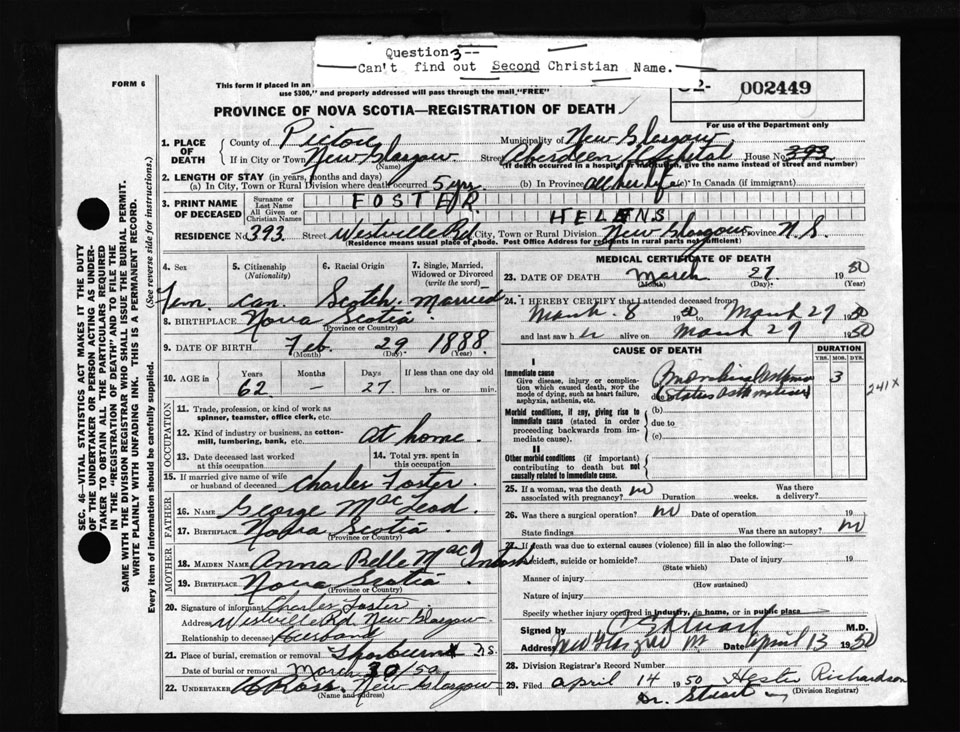 Question 3--
Can't find out Second Christian Name.
FORM 6
This form if placed in an
use $300," and properly addressed will pass through the mail "FREE"
PROVINCE OF NOVA SCOTIA—REGISTRATION OF DEATH
002449
For use of the Department only
1. PLACE OF DEATH
County of Pictou Municipality of New Glasgow
If in City or Town New Glasgow Street Aberdeen Hospital House No 393
(Name) (If death occurred in a hospital or institution, give the name instead of street and number)
2. LENGTH OF STAY (in years, months and days)
(a) In City, Town or Rural Division where death occurred 5 yrs. (b) In Province all her life (c) In Canada (if immigrant)
3. PRINT NAME OF DECEASED
Surname or Last Name FOSTER
All Given or Christian Names HELENS
RESIDENCE No 393 Street Westville Rd City, Town or Rural Division New Glasgow Province N.S.
(Residence means usual place of abode. Post Office Address for residents in rural parts not sufficient)
4. Sex Fem
5. Citizenship (Nationality) Can.
6. Racial Origin Scotch.
7. Single, Married, Widowed or Divorced (write the word) Married
8. BIRTHPLACE Nova Scotia
(Province or Country)
9. DATE OF BIRTH Feb. 29 1888
(Month) (Day) (Year)
10. AGE in Years 62 Months — Days 27 If less than one day old hrs. or min.
OCCUPATION
11. Trade, profession, or kind of work as spinner, teamster, office clerk, etc.
12. Kind of industry or business, as cotton-mill, lumbering, bank, etc. at home.
13. Date deceased last worked at this occupation
14. Total yrs. spent in this occupation
15. If married give name of wife or husband of deceased Charles Foster
FATHER
16. NAME George MacLeod.
17. BIRTHPLACE Nova Scotia
(Province or Country)
MOTHER
18. MAIDEN NAME Anna Belle MacIntosh
19. BIRTHPLACE Nova Scotia
(Province or Country)
20. Signature of informant Charles Foster
Address Westville Rd. New Glasgow
Relationship to deceased Husband
21. Place of burial, cremation or removal N.S.
Date of burial or removal March 30/50
22. UNDERTAKER Ross. New Glasgow
(Name and Address)
MEDICAL CERTIFICATE OF DEATH
23. DATE OF DEATH March 27 1950
(Month) (Day) (Year)
24. I HEREBY CERTIFY that I attended deceased from
March 8 1950 to March 27 1950
and last saw h er alive on March 27 1950
CAUSE OF DEATH
DURATION
YRS. MOS. DYS.
I
Immediate cause
Give disease, injury or complication which caused DEATH, NOT the mode of dying, such as heart failure, asphyxia, asthenia, etc.
(a) Bronchial Asthma 3
due to Status Asthmaticus
241X
Morbid conditions, if any, giving rise to immediate cause (stated in order proceeding backwards from immediate cause).
(b)
due to
(c)
II
Other morbid conditions (if important) contributing to death but not causally related to immediate cause.
25. If a woman, was the death associated with pregnancy? no Duration weeks. Was there a delivery?
26. Was there a surgical operation? no Date of operation 19
State findings Was there an autopsy? no
27. If death was due to external causes (violence) fill in also the following:—
Accident, suicide or homicide? Date of injury 19
(State which)
Manner of injury
(How sustained)
Nature of injury
Specify whether injury occurred in industry, in home, or in public place
Signed by Stuart M.D.
Address New Glasgow NS Date April 13 1950
28. Division Registrar's Record Number
29. Filed April 14 1950 Hester Richardson
(Division Registrar)
Dr. Stuart
SEC. 46—VITAL STATISTICS ACT MAKES IT THE DUTY
OF THE UNDERTAKER OR PERSON ACTING AS UNDER-
TAKER TO OBTAIN ALL THE PARTICULARS REQUIRED
IN THE "REGISTRATION OF DEATH" AND TO FILE THE
SAME WITH THE DIVISION REGISTRAR WHO SHALL ISSUE THE BURIAL PERMIT.
WRITE PLAINLY WITH UNFADING INK. THIS IS A PERMANENT RECORD.
Every item of information should be carefully supplied. (See reverse side for instructions.)